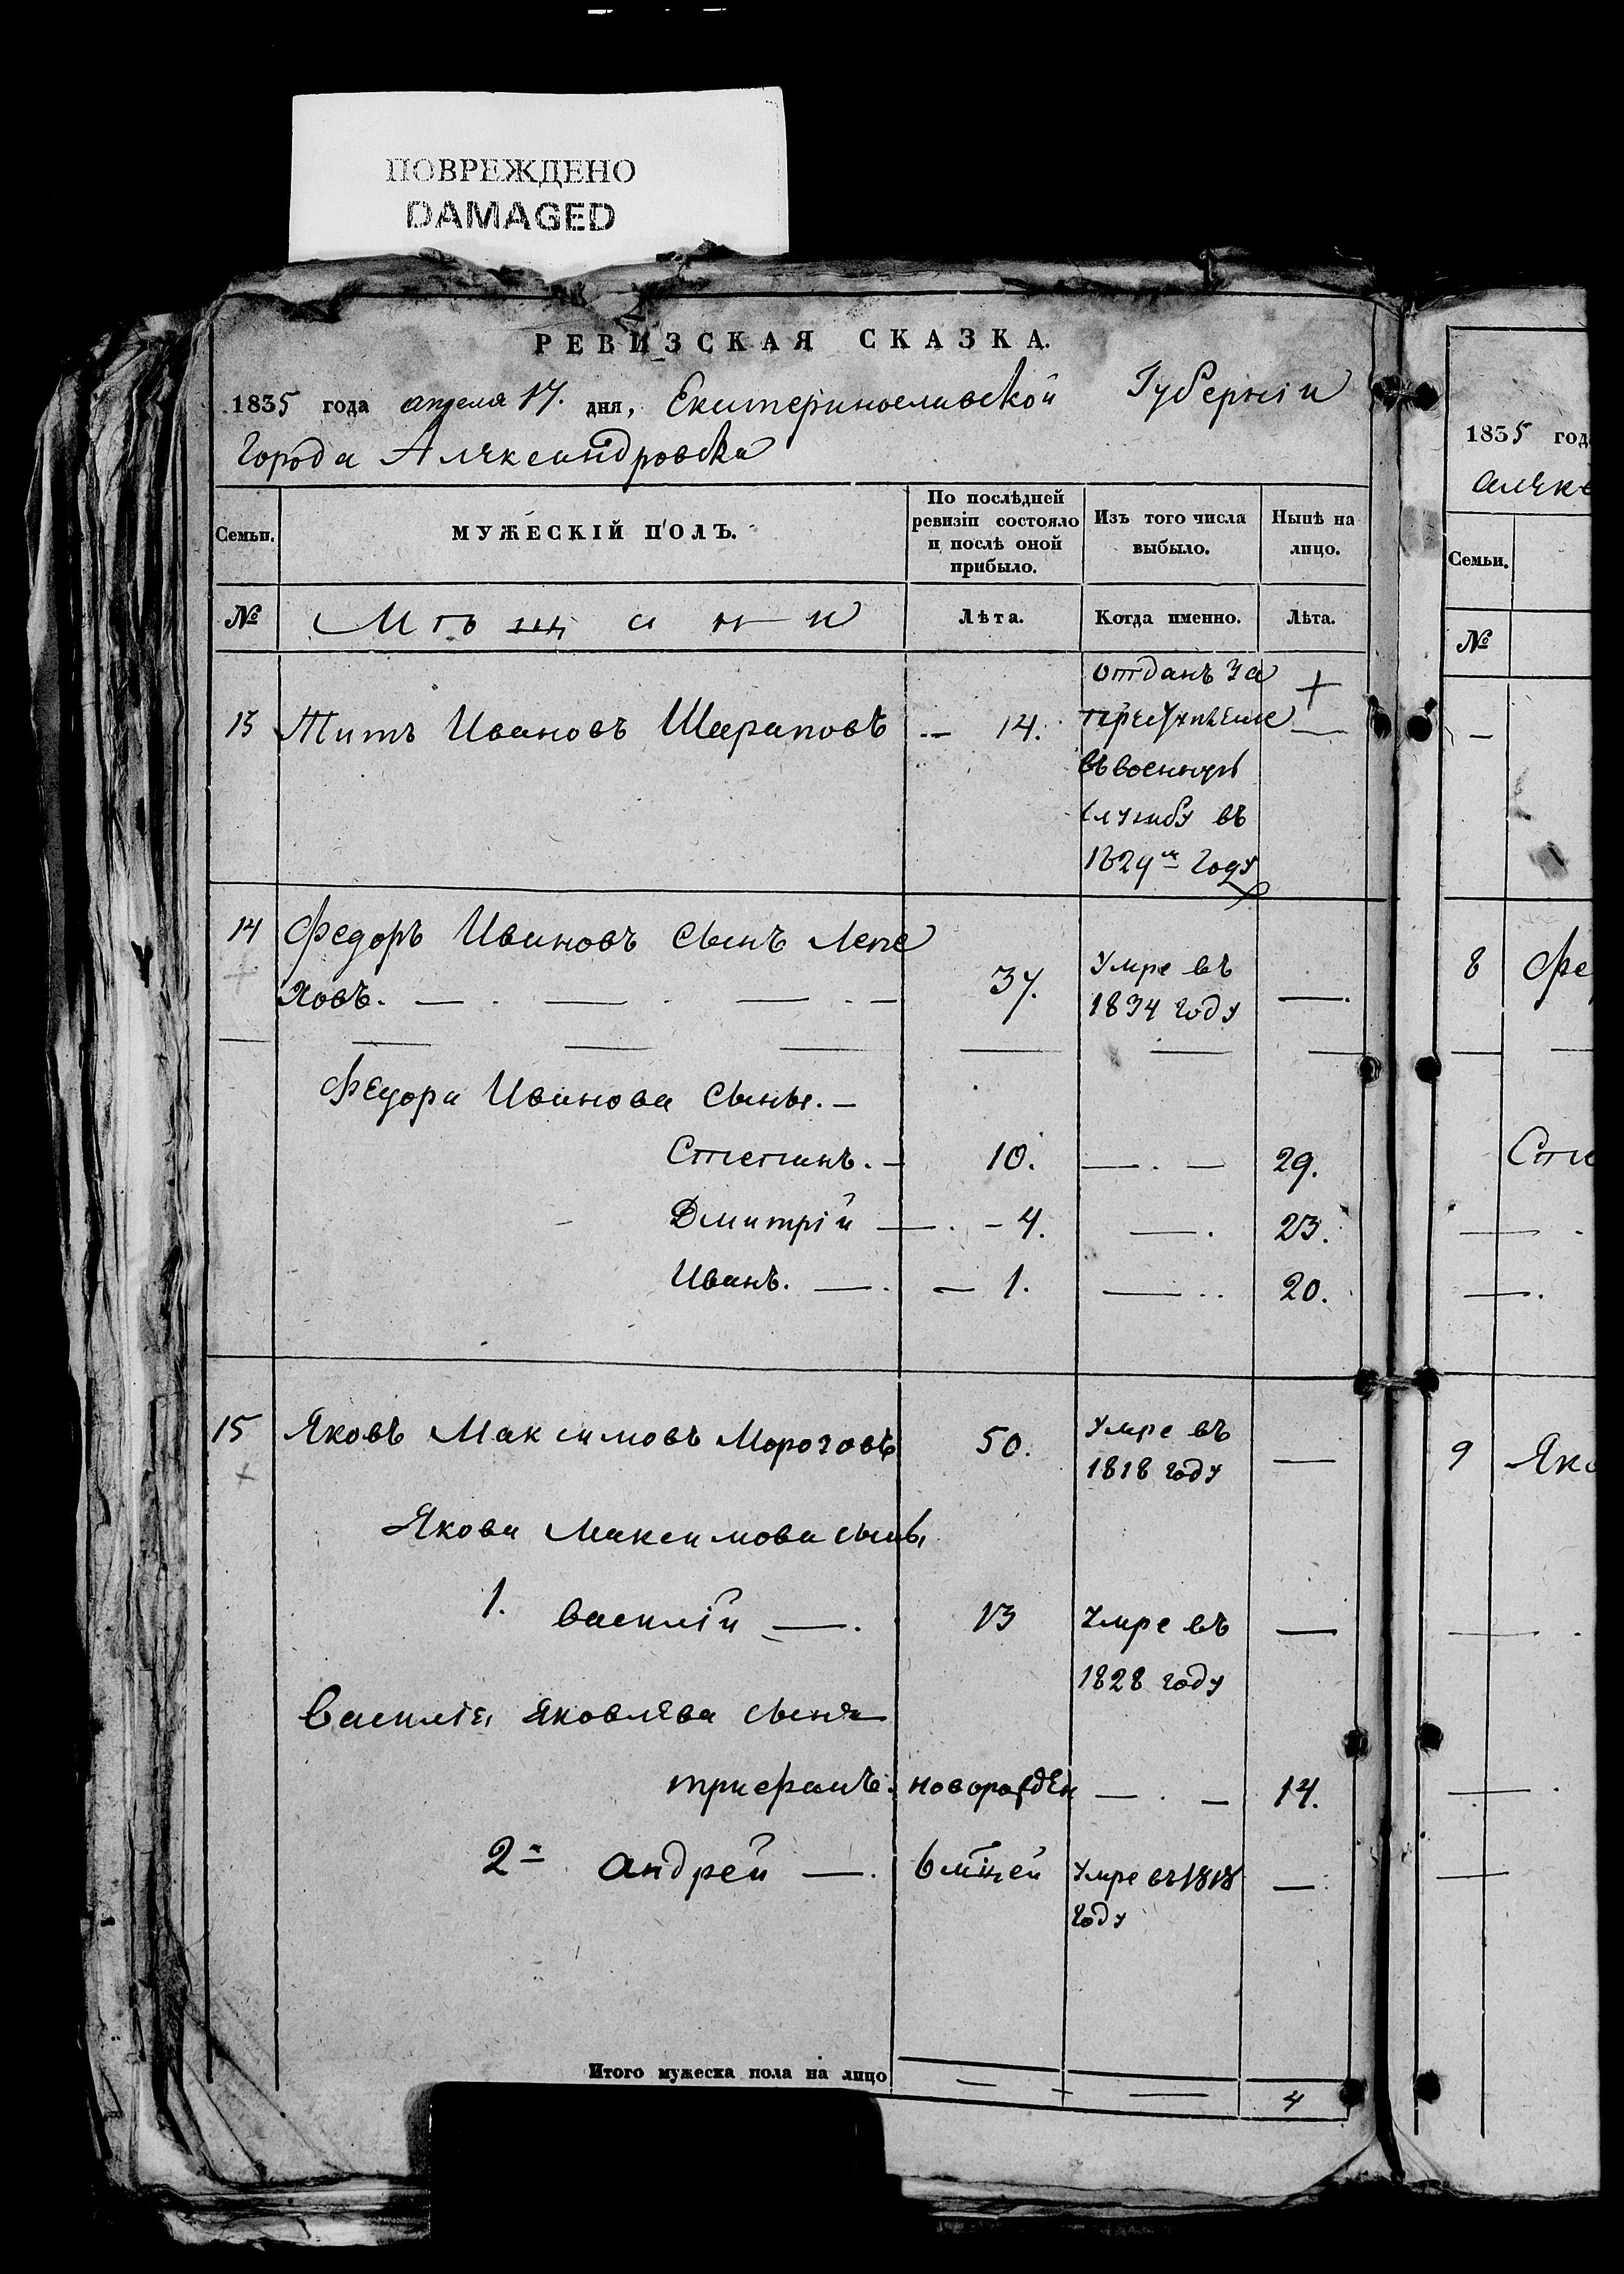 ПОВРЕЖДЕНО
DAMAGED
РЕВИЗСКАЯ СКАЗКА.
1835 года апреля 17. дня, Екатеринославской Губерніи
Города Александровска
Семьи. МУЖЕСКІЙ ПОЛЪ. По послѣдней ревизіи состояло и послѣ оной прибыло. Изъ того числа выбыло. Нынѣ на лицо.
№ Мѣщани Лѣта. Когда именно. Лѣта.
отданъ за +
13 Титъ Ивановъ Шараповъ -- 14. преступленіе —
въ военную
службу въ
1824м году
14 Федоръ Ивановъ сынъ Лепе
ховъ. 37. Умре въ 1834 году —.
Федора Иванова сыны.
Степанъ. 10. — . — 29.
Дмитрій — . – 4. — . 23.
Иванъ. — . — 1. — . . 20.
15 Яковъ Максимовъ Морозовъ 50. Умре въ 1818 году —
Якова Максимова сыны
1. Василій — . 13 Умре въ —
1828 году
Василія Яковлева сынъ
трифанъ. новорожден — . — 14.
2й андрей — . 6 мѣсяцей Умре въ 1818 —.
году
Итого мужеска пола на лицо — — — 4
1835 год
алекс
Семьи.
№
—
8 Фе
Сте
9 Яко